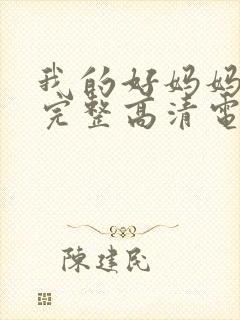 我的好妈妈
完整高清電
陳建民